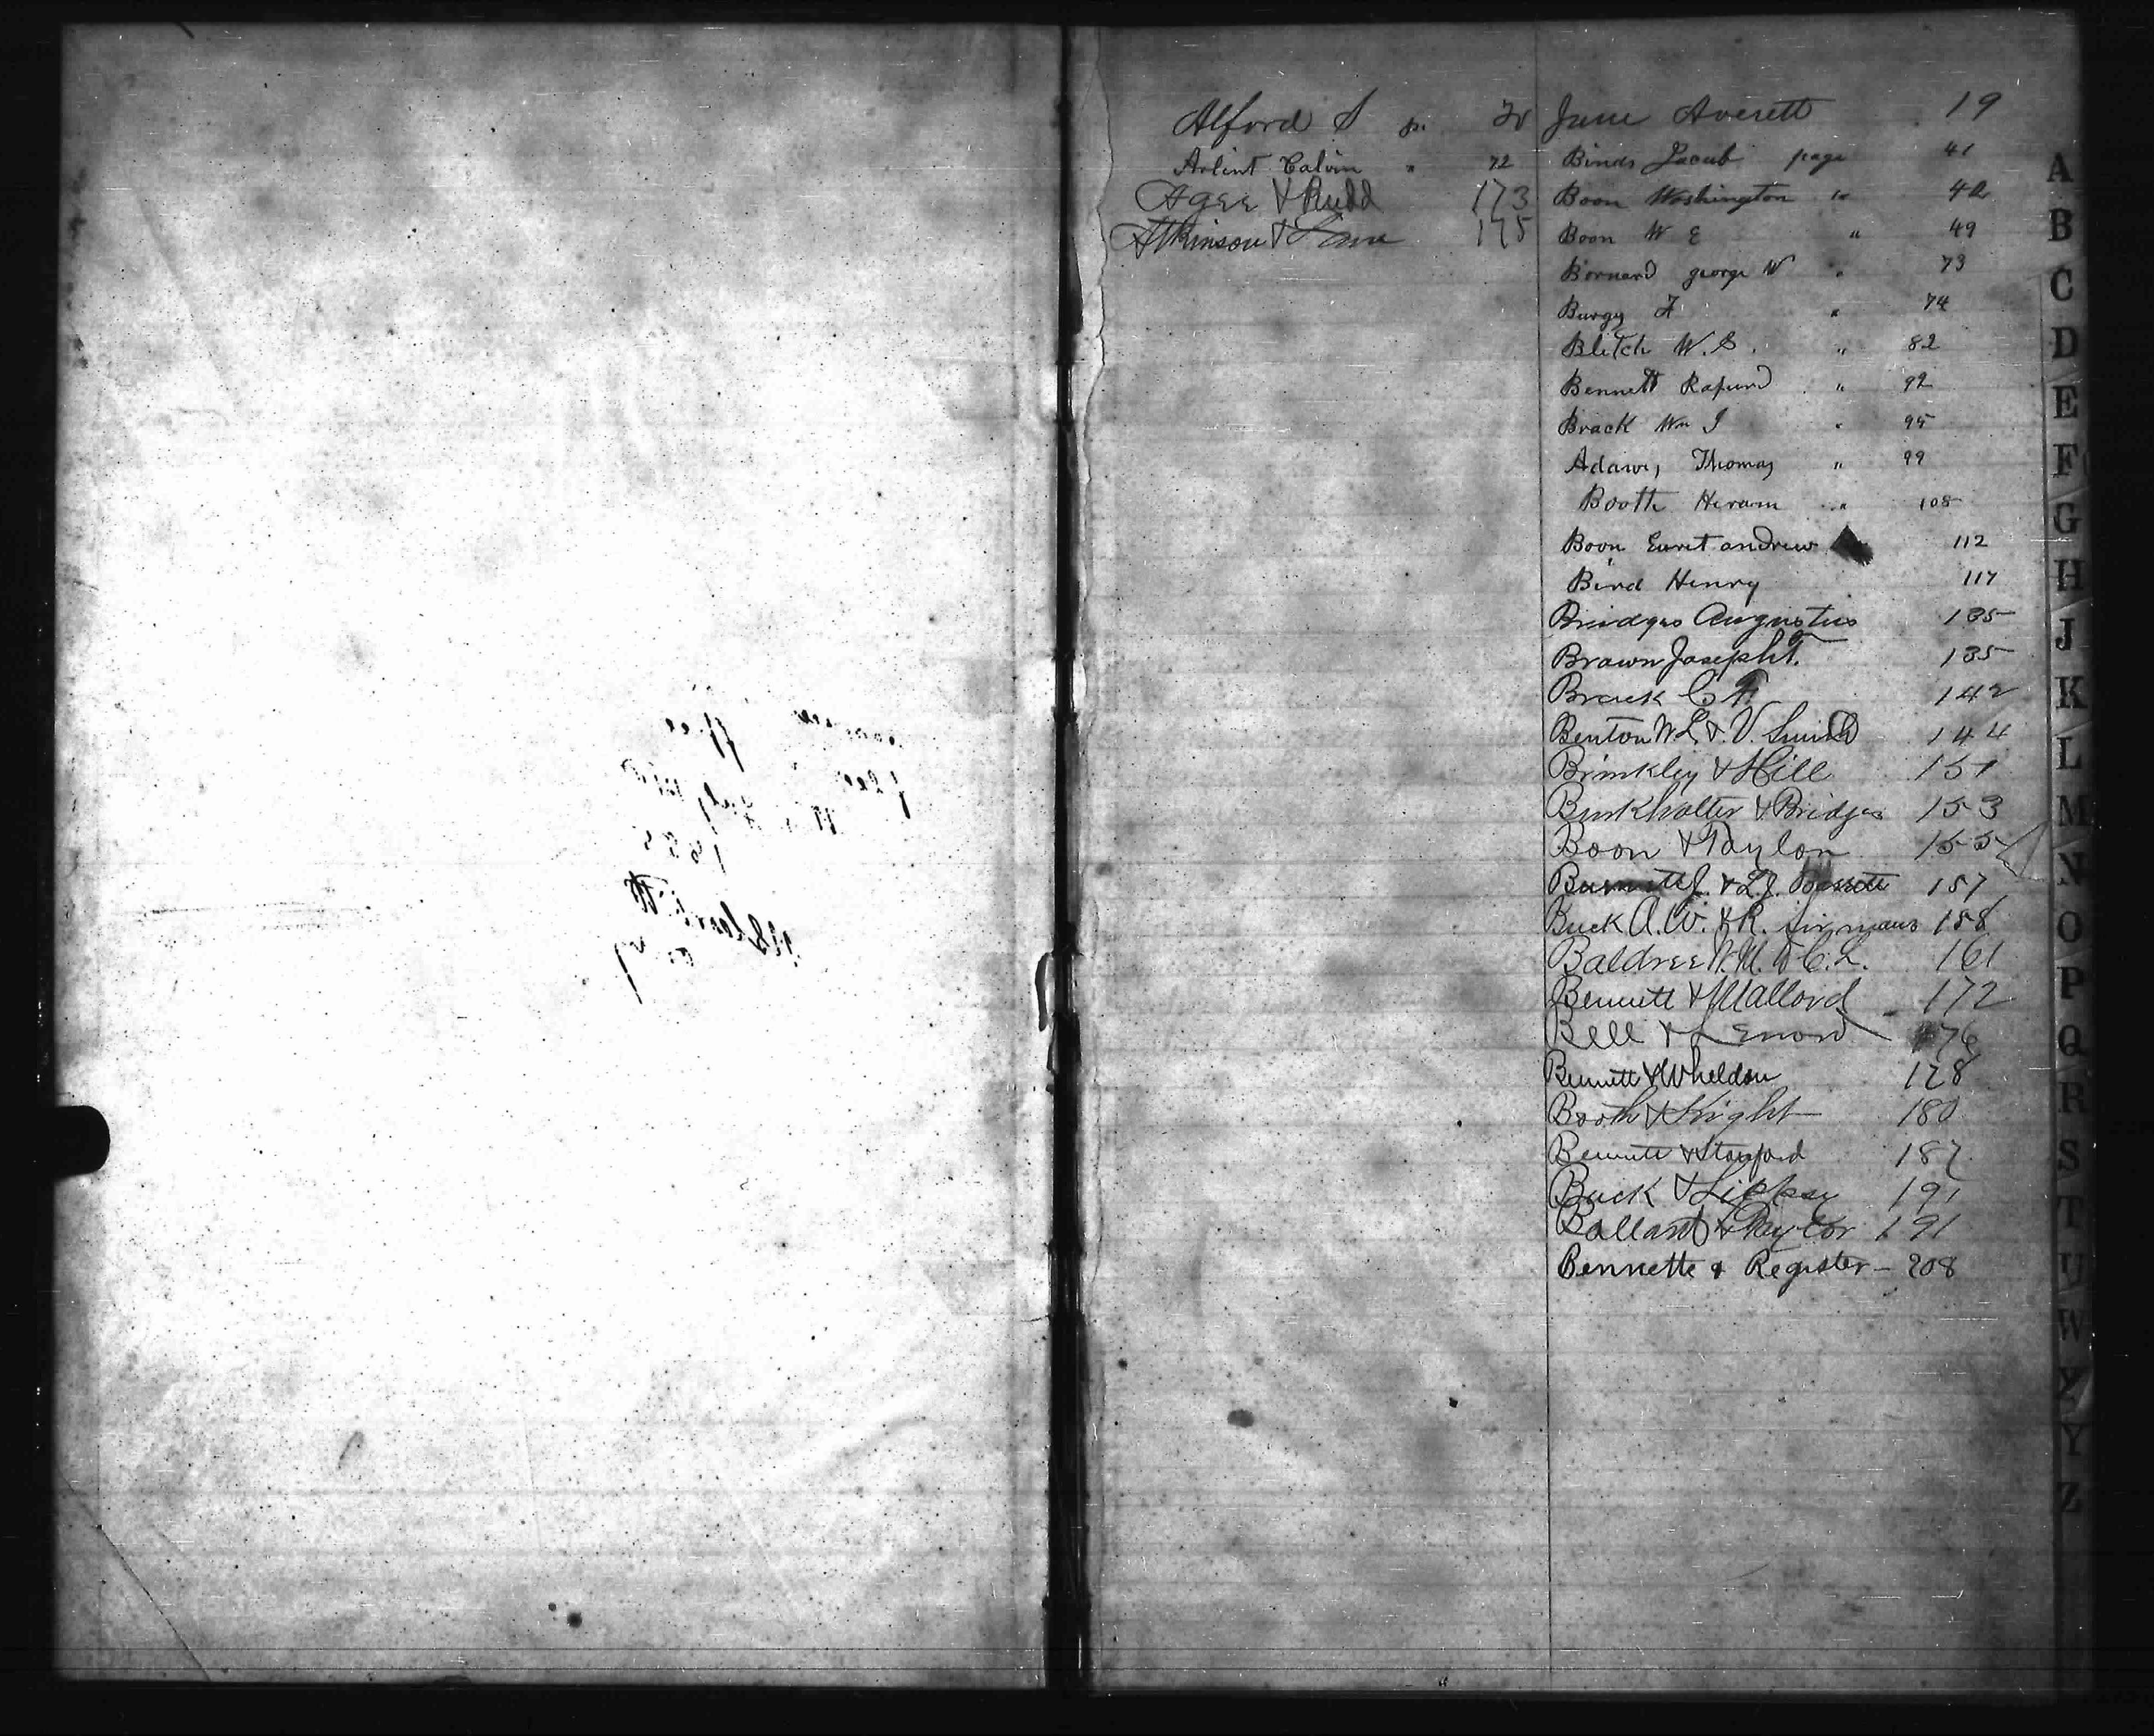 Alford S p. 20
Arlint Calvin " 72
Agee & Rudd 173
Atkinson & Lane 175
June Averett 19
Binds Jacob page 41
Boon Washington " 42
Boon W E " 49
Bornard george W " 73
Burgy F " 74
Blitch W. S. " 82
Bennett " 92
Brack Wm J " 95
Adams, Thomas " 99
Booth Hiram " 108
Boon andrew 112
Bird Henry 117
Bridges Augustus 135
Brawn Joseph T. 135
Brack C F 142
Benton W L & V. Smith 144
Brinkley & Hill 151
Burkhalter & Bridges 153
Boon & Taylor 155
Burnett J. & L. J. 157
Buck A. W. & R. Sirmans 158
Baldree N. M. & C. L. 161
Bennett & Mallord 172
Bell & Lenord 176
Bennett & Wheldon 178
Booth & Knight 180
Bennett & Stanford 187
Buck & Lippsy 191
Ballard & Taylor 191
Bennette & Register - 208
A
B
C
D
E
F
G
H
J
K
L
M
N
O
P
Q
R
S
T
U
W
Y
Z